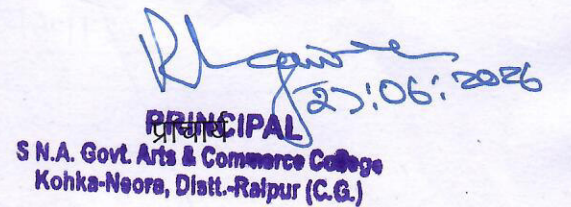 27:06:2026
PRINCIPAL
प्राचार्य
S N.A. Govt. Arts & Commerce College
Kohka-Neora, Distt.-Raipur (C.G.)